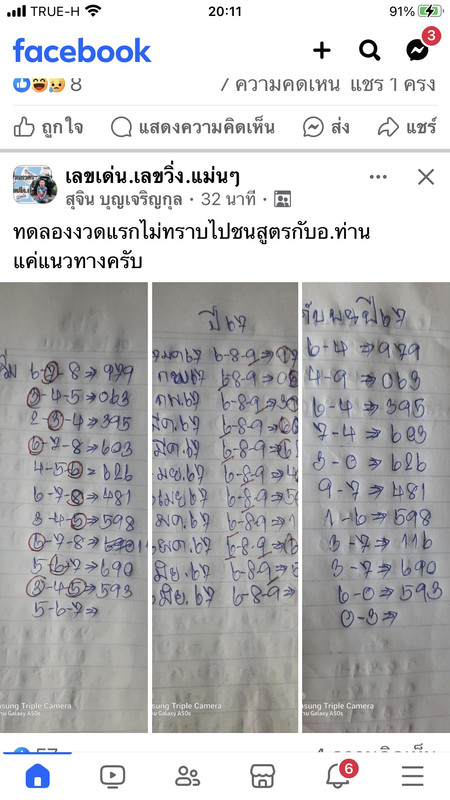 TRUE-H 20:11 91%
facebook
3
8 7 ความคิดเห็น แชร์ 1 ครั้ง
ถูกใจ แสดงความคิดเห็น ส่ง แชร์
เลขเด่น.เลขวิ่ง.แม่นๆ
สุจิน บุญเจริญกุล · 32 นาที ·
ทดลองงวดแรกไม่ทราบไปชนสูตรกับอ.ท่าน
แค่แนวทางครับ
6-7-8⇒979
3-4-5⇒063
2-3-4⇒395
6-7-8⇒603
4-5-6⇒626
6-7-8⇒481
3-4-5⇒598
6-7-8⇒
5-6-7⇒690
3-4-5⇒593
5-6-7⇒
sung Triple Camera
Galaxy A50s
ปี 67
6-8-9⇒
กพ67 6-8-9⇒
กพ.67 6-8-9⇒
มีค.67 6-8-9⇒
มีค.67 6-8-9⇒6
เมย.67 6-8-9⇒4
เมย67 6-8-9⇒5
พค.67 6-8-9⇒1
พค.67 6-8-9⇒
มิย.67 6-8-9⇒5
มิย.67 6-8-9⇒
sung Triple Camera
Galaxy A50s
ปี67
6-4⇒979
4-9⇒063
6-4⇒395
7-4⇒603
3-0⇒626
9-7⇒481
1-6⇒598
3-7⇒116
3-7⇒690
6-0⇒593
0-3⇒
sung Triple Camera
Galaxy A50s
57
6